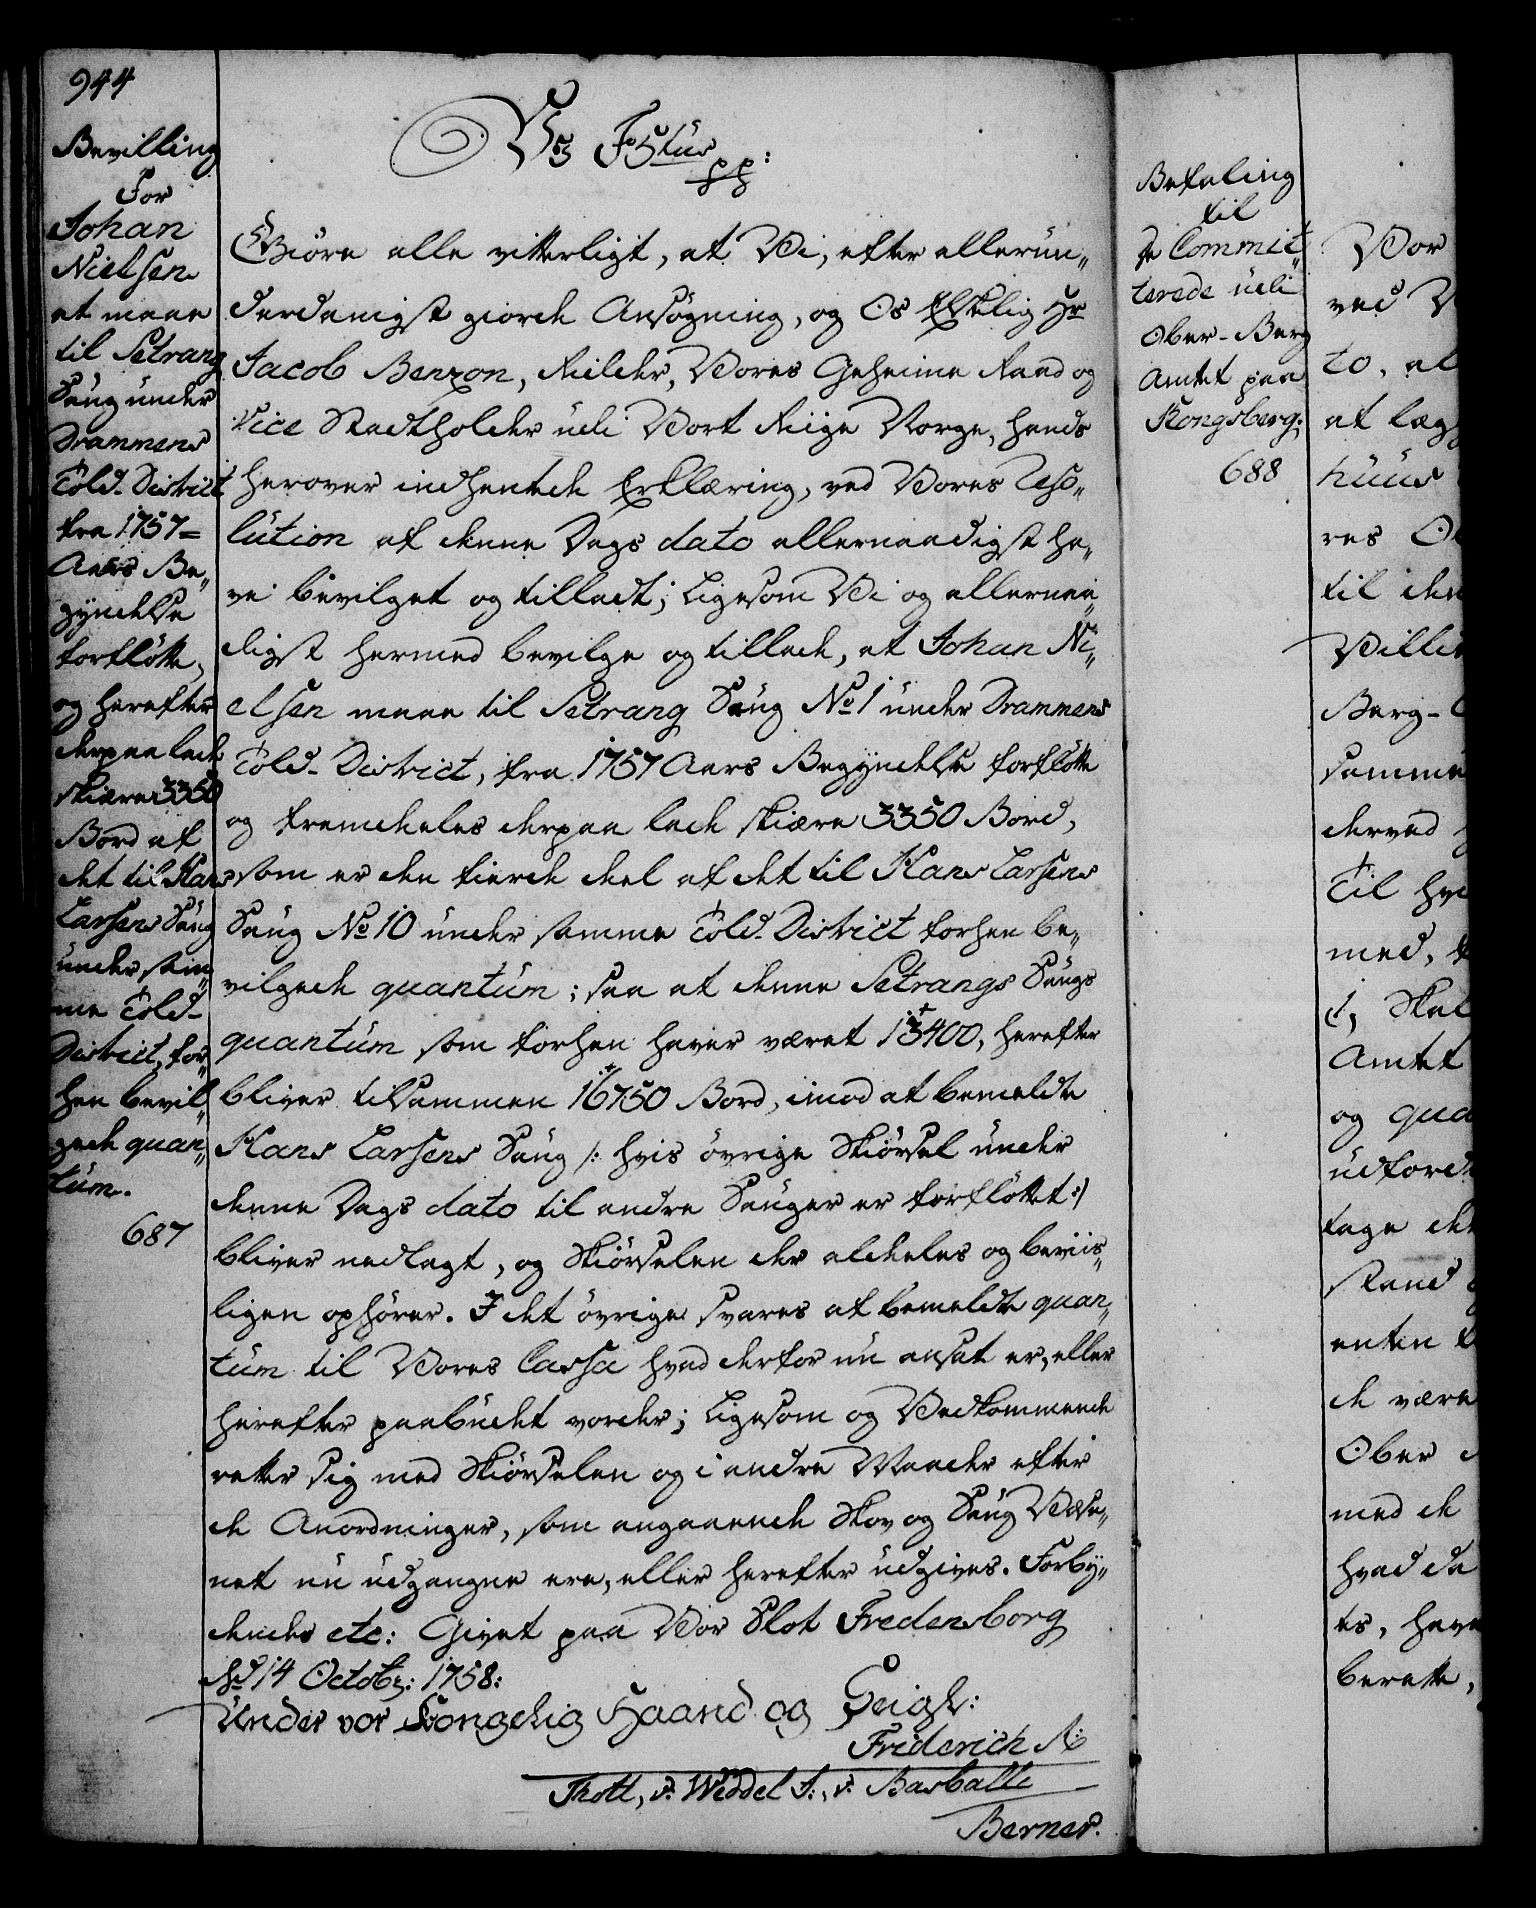 944
Bevilling
For
Johan
Nielsen
at maae
til Setrang
Saug under
Drammens
Told-District
fra 1757-
Aars Be„
gyndelse
forflötte,
og herefter
derpaa lade
skiære 3350
Bord af
det til Hans
Larsens Saug
under sam„
me Told-
District, for„
hen bevil„
gede quan„
tum.
687
Vi Fr: 5tus pp:
Giöre alle vitterligt, at Vi, efter allerun„
derdanigst giorde Ansögning, og Os Elskelig Hr
Jacob Benzon, Ridder, Vores Geheime Raad og
Vice Stadtholder udi Vort Riige Norge, hands
herover indhentede Erklæring, ved Vores Reso„
lution af denne Dags dato allernaadigst ha„
ve bevilget og tilladt; Ligesom Vi og allernaa„
digst hermed bevilge og tillade, at Johan Ni„
elsen maae til Setrang Saug No 1 under Drammens
Told-District, fra 1757 Aars Begyndelse forflötte
og fremdeeles derpaa lade skiære 3350 Bord,
som er den fierde deel af det til Hans Larsens
Saug No 10 under samme Told-District forhen be„
vilgede quantum; saa at denne Setrangs Saugs
quantum som forhen haver været 13400, herefter
bliver tilsammen 16750 Bord, imod at bemeldte
Hans Larsens Saug /: hvis övrige Skiörsel under
denne Dags dato til andre Sauger er forflöttet :/
bliver nedlagt, og Skiörselen der aldeeles og beviis„
ligen ophörer. I det övrige svares af bemeldte quan„
tum til Vores Cassa hvad derfor nu ansat er, eller
herefter paabudet vorder; Ligesom og Vedkommende
retter sig med Skiörselen og i andre Maader efter
de Anordninger, som angaaende Skov og Saug Væse„
net nu udgangne ere, eller herefter udgives. Forby„
dendes etc: Givet paa Vor Slot Fredensborg
d. 14 Octobr: 1758:
Under vor Kongelig Haand og Seigl:
Friderich R:
Thott, v. Weddel F:, v. Barballe
Berner.
Befaling
til
de Commit„
terede udi
Ober-Berg
Amtet paa
Kongsberg.
688
Vor
ved V
to, al
at læg
huus
res O
til den
Villie
Berg-
samme
derved
Til hv
med,
Skal
Amtet
og qua
udford
tage de
stand
enten
de være
Ober
med de
hvad da
tes, have
berette,